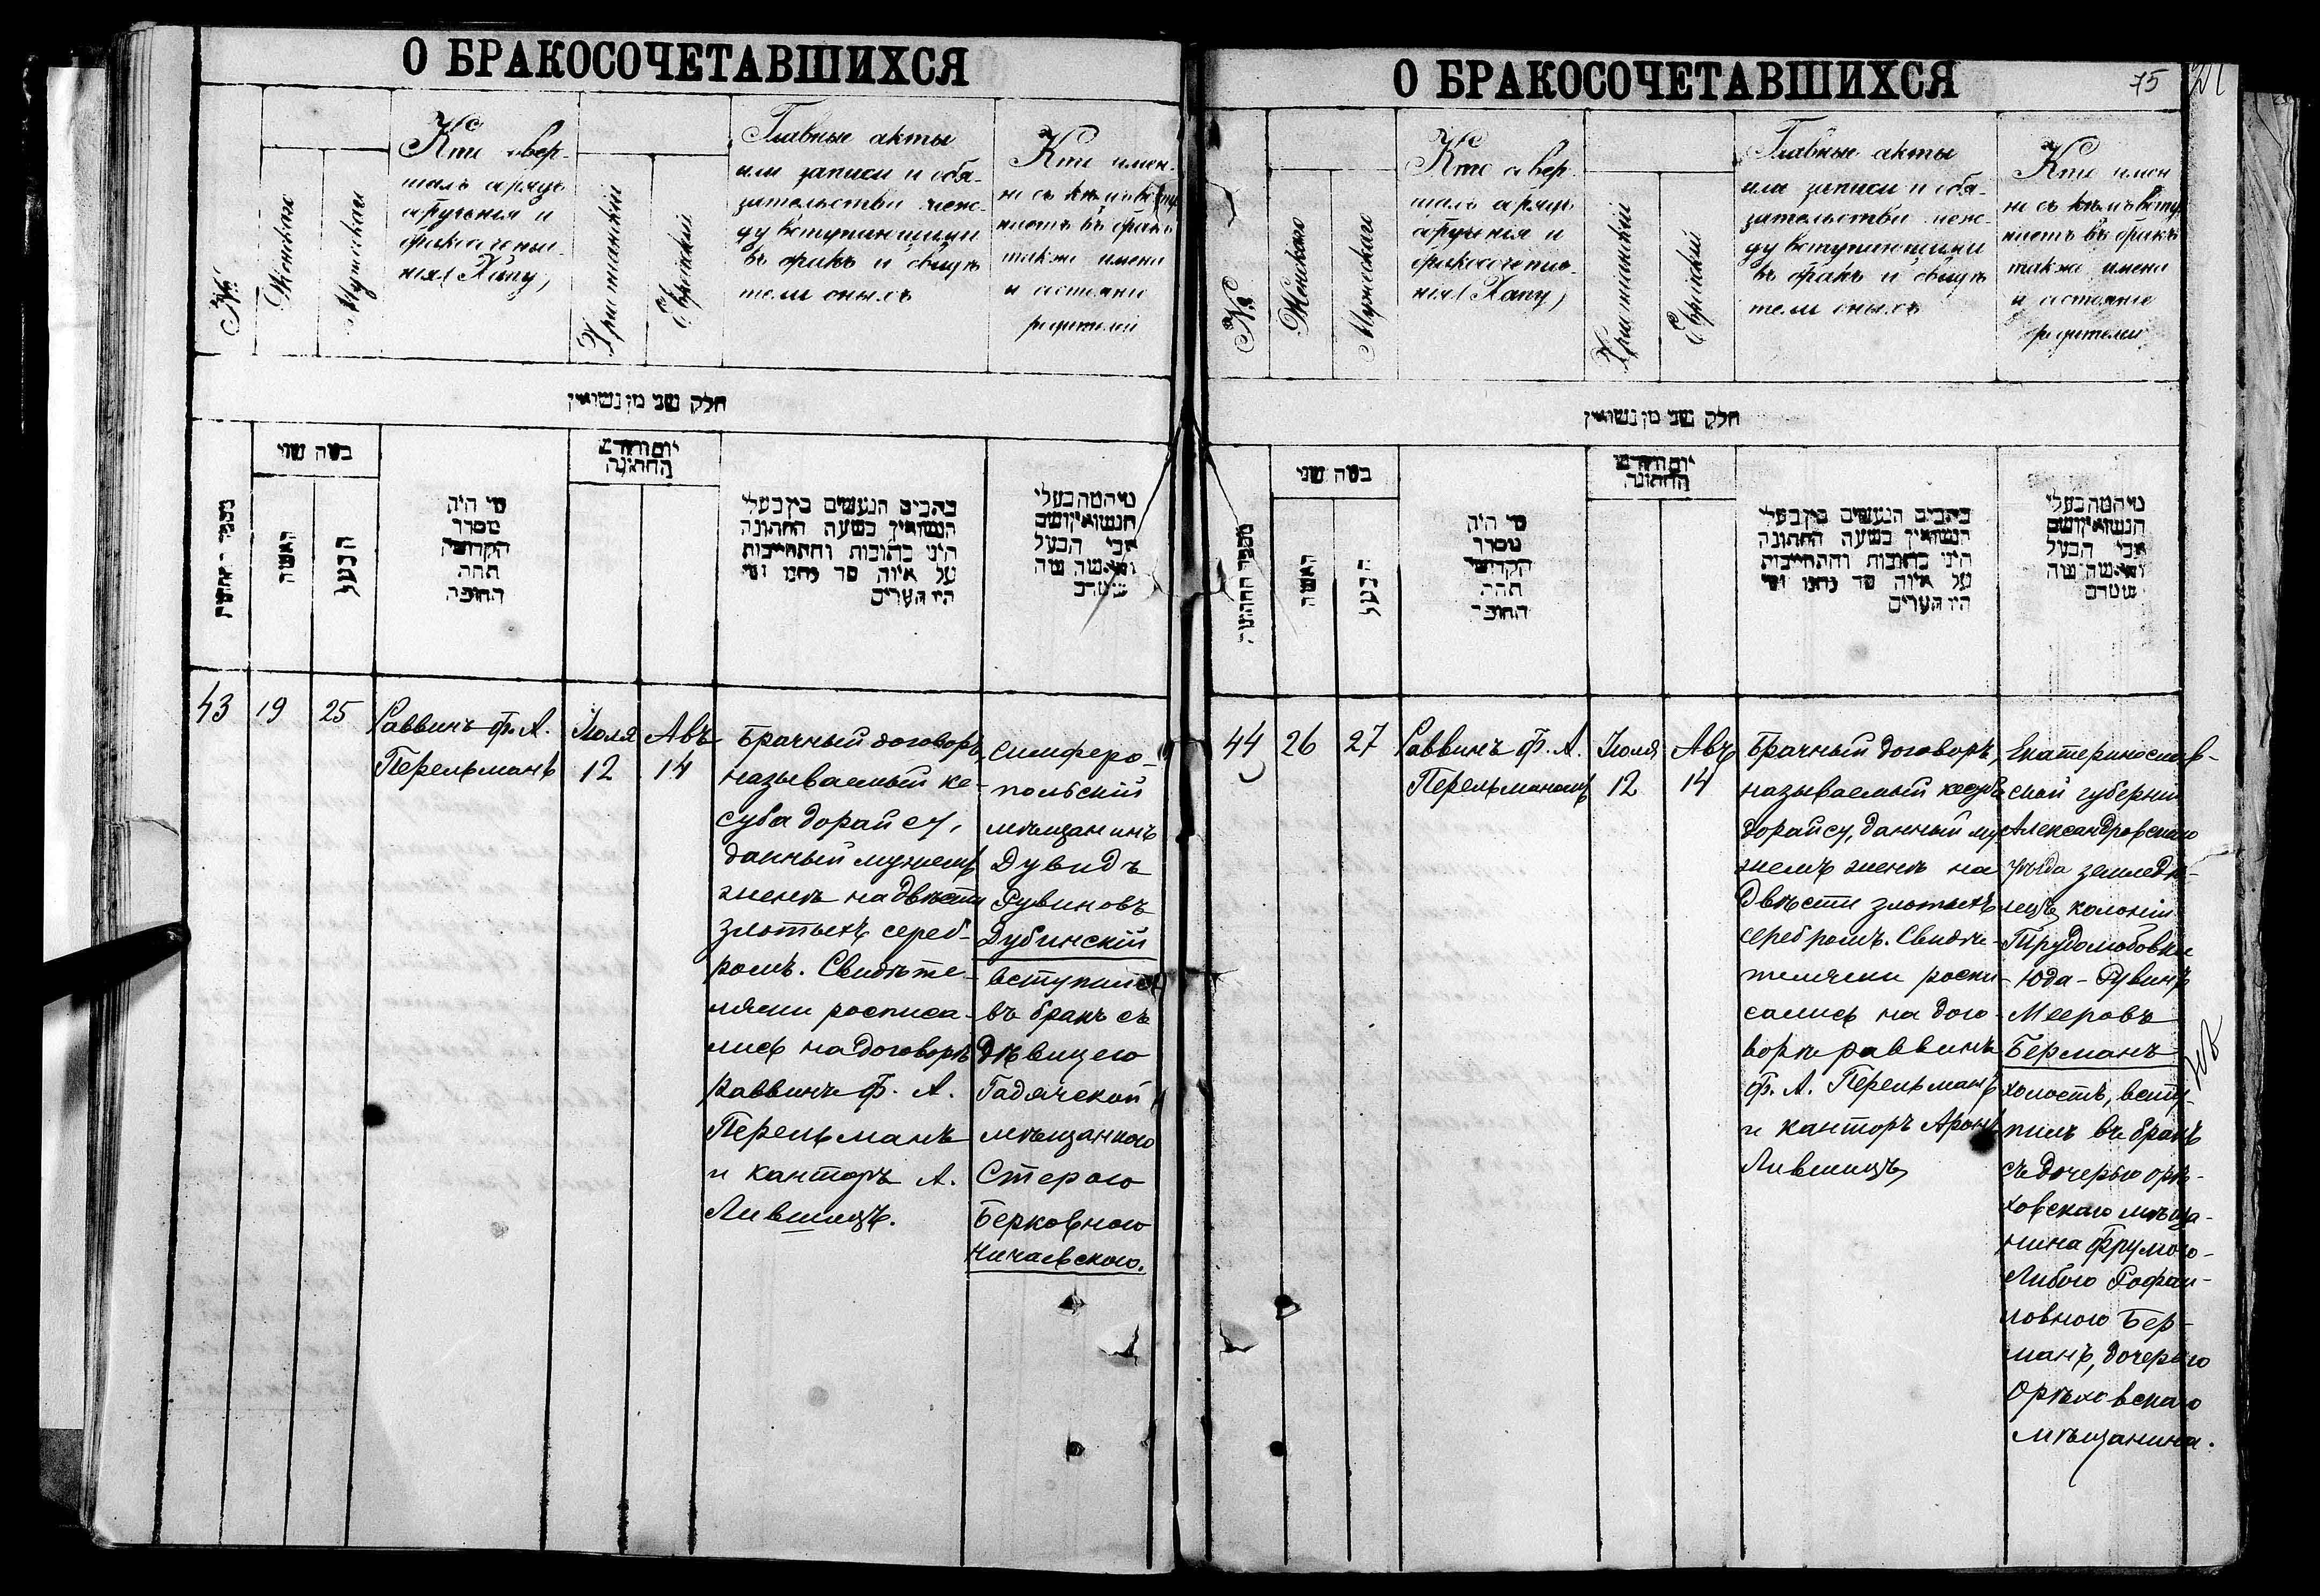 О БРАКОСОЧЕТАВШИХСЯ
№
Женская
Мужская
Кто совер-
шалъ обрядъ
обрученія и
бракосочета-
нія (Хапу)
Христіанскій
Еврейскій
Главные акты
или записи и обя-
зательства меж-
ду вступившими
въ бракъ и свидѣ
тели оныхъ
Кто имен-
но съ кѣмъ всту
паетъ въ бракъ
также имена
и состояніе
родителей
חלק שני מן נשואין
מספר החתונה
כמה שני
האשה
הבעל
מי היה
מסדר
הקדושין
תחת
החופה
יום וחדש
החתונה
כתבים הנעשים בין בעלי
הנשואין בשעה החתונה
היינו כתובות והתחייבות
על איזה סד נתנו ומי
היו העדים
מי המה בעלי
הנשואין ושם
אבי הבעל
והאשה מה
שמדם
43
19
25
Раввинъ Ф. А.
Перельманъ
Іюля
12
Авъ
14
Брачный договоръ,
называемый ке-
суба дорайсу,
данный мужемъ
женѣ на двѣсти
злотыхъ сереб-
ромъ. Свидѣте-
лями росписа-
лись на договорѣ
раввинъ Ф. А.
Перельманъ
и канторъ А.
Лившицъ.
Симферо-
польскій
мѣщанинъ
Дувидъ
Рувиновъ
Дубинскій
вступилъ
въ бракъ съ
дѣвицею
Гадячской
мѣщанкою
Стерою
Берковною
Ничаевскою.
О БРАКОСОЧЕТАВШИХСЯ
75
№
Женская
Мужеская
Кто совер-
шалъ обрядъ
обрученія и
бракосочета-
нія (Хапу)
Христіанскій
Еврейскій
Главные акты
или записи и обя-
зательства меж-
ду вступившими
въ бракъ и свидѣ
тели оныхъ
Кто имен
но съ кѣмъ всту
паетъ въ бракъ
также имена
и состояніе
родителей
חלק שני מן נשואין
מספר החתונה
כמה שני
האשה
הבעל
מי היה
מסדר
הקדושין
תחת
החופה
יום וחדש
החתונה
כתבים הנעשים בין בעלי
הנשואין בשעה החתונה
היינו כתובות והתחייבות
על איזה סד נתנו ומי
היו העדים
מי המה בעלי
הנשואין ושם
אבי הבעל
והאשה מה
שמדם
44
26
27
Раввинъ Ф. А.
Перельманомъ
Іюля
12
Авъ
14
Брачный договоръ,
называемый кесуба
дорайсу, данный му-
жемъ женѣ на
двѣсти злотыхъ
серебромъ. Свидѣ-
телями роспи-
сались на дого-
ворѣ раввинъ
Ф. А. Перельманъ
и канторъ Аронъ
Лившицъ
Екатеринослав-
ской губерніи
Александровскаго
уѣзда земледѣ-
лецъ колоніи
Трудолюбовки
Юда-Рувинъ
Мееровъ
Берманъ
холостъ, всту-
пилъ въ бракъ
съ дочерью орѣ-
ховскаго мѣща-
нина Фрумою-
Либою Рофаи-
ловною Бер-
манъ, дочерью
Орѣховскаго
мѣщанина.